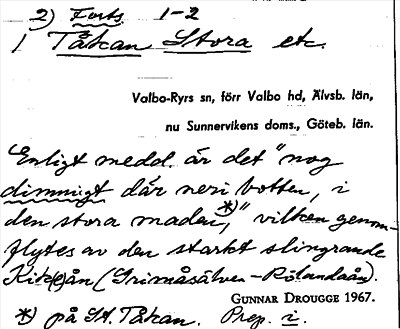 2) Forts 1-2
1 Tåkan Stora etc.
Valbo-Ryrs sn, förr Valbo hd, Älvsb. län,
nu Sunnervikens doms., Göteb. län.
Enligt medd. är det "nog
dimmigt där neri botten, i
den stora maden,*)" vilken genom-
flytes av den starkt slingrande
Kik(e)ån (Grimåsälven-Rölandaån).
GUNNAR DROUGGE 1967.
*) på St. Tåkan. Prep. i.